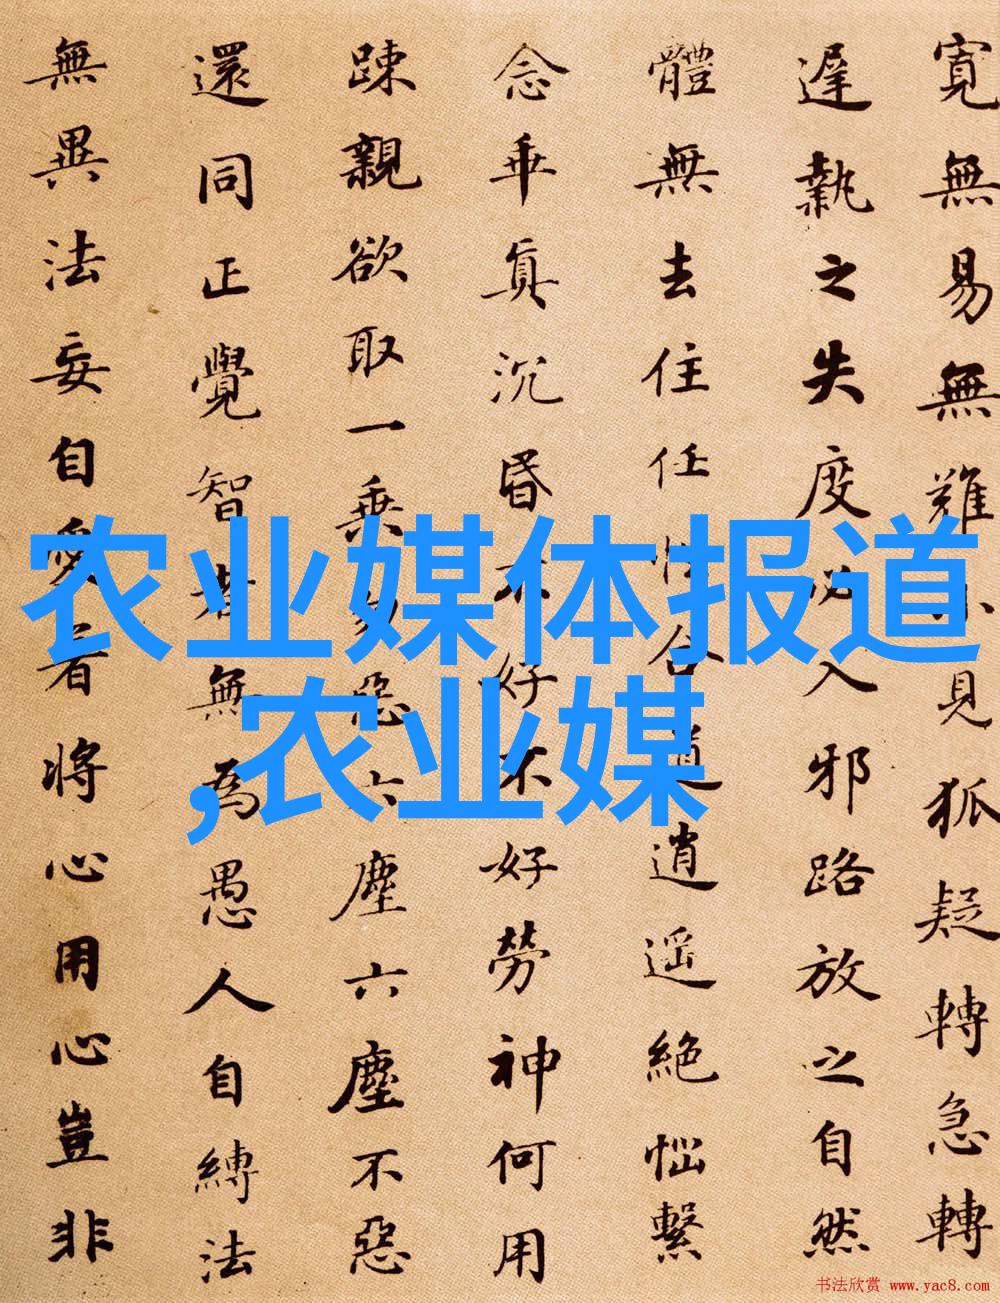 寬無易無難小見狐疑轉急轉
遲執之失度必入邪路放之自然
體無去住任性合道逍遥絕惱繫
念乖真沉昏不好不好勞神何用
踈親欲取一乘勿惡六塵六塵不惡
還同正覺智者無為愚人自縛法
無異法妄自愛着將心用心豈非
农业媒体报道
,农业媒
书法欣赏 www.yac8.com